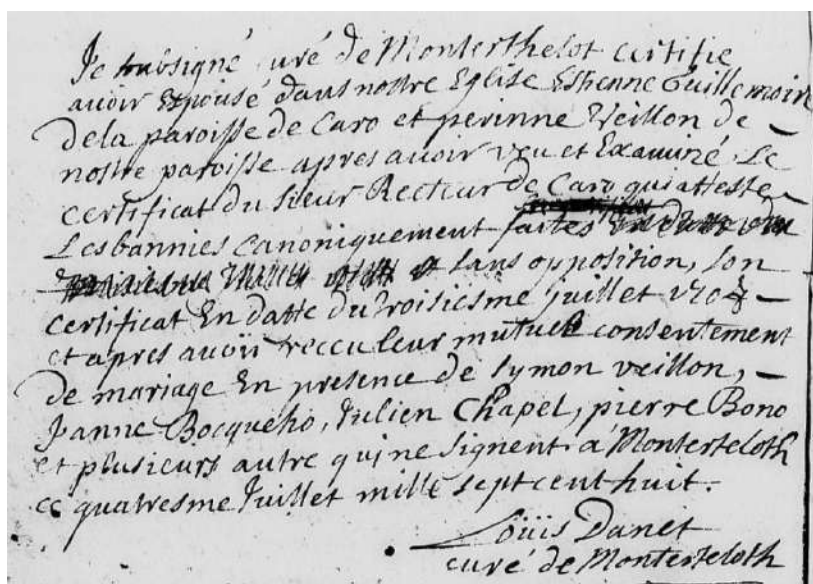 Je soubsigné curé de Monterthelot certifie
avoir Espousé dans nostre Eglise Estienne Guillemoin
dela paroisse de Caro et perinne Veillon de
nostre paroisse apres avoir veu et Examiné Le
certificat du sieur Recteur de Caro qui atteste
Les bannies canoniquement faites
et sans opposition, son
certificat En datte du troisiesme juillet 1708
et apres avoir receu leur mutuel consentement
de mariage En presence de Symon veillon,
Janne Bocqueho, Julien Chapel, pierre Bono
et plusieurs autre qui ne signent a Monterteloth
ce quatresme Juillet mille sept cent huit.
Loüis Danet
curé de Monterteloth